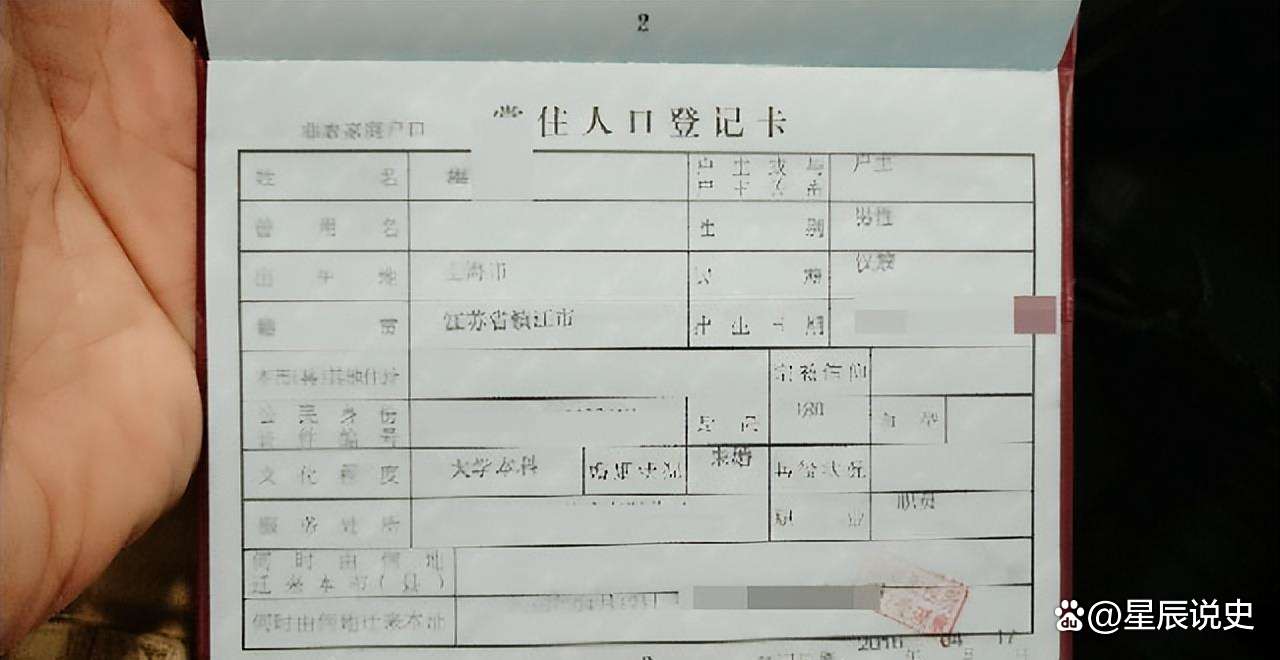 2
非农家庭户口 常住人口登记卡
姓名 户主或与户主关系 户主
曾用名 性别 男性
出生地 上海市 民族
籍贯 江苏省镇江市 出生日期
本市(县)其他住址 宗教信仰
公民身份证件编号 身高 180 血型
文化程度 大学本科 婚姻状况 未婚 兵役状况
服务处所 职业 职员
何时由何地迁来本市(县)
何时由何地迁来本址
2010年04月17日
@星辰说史